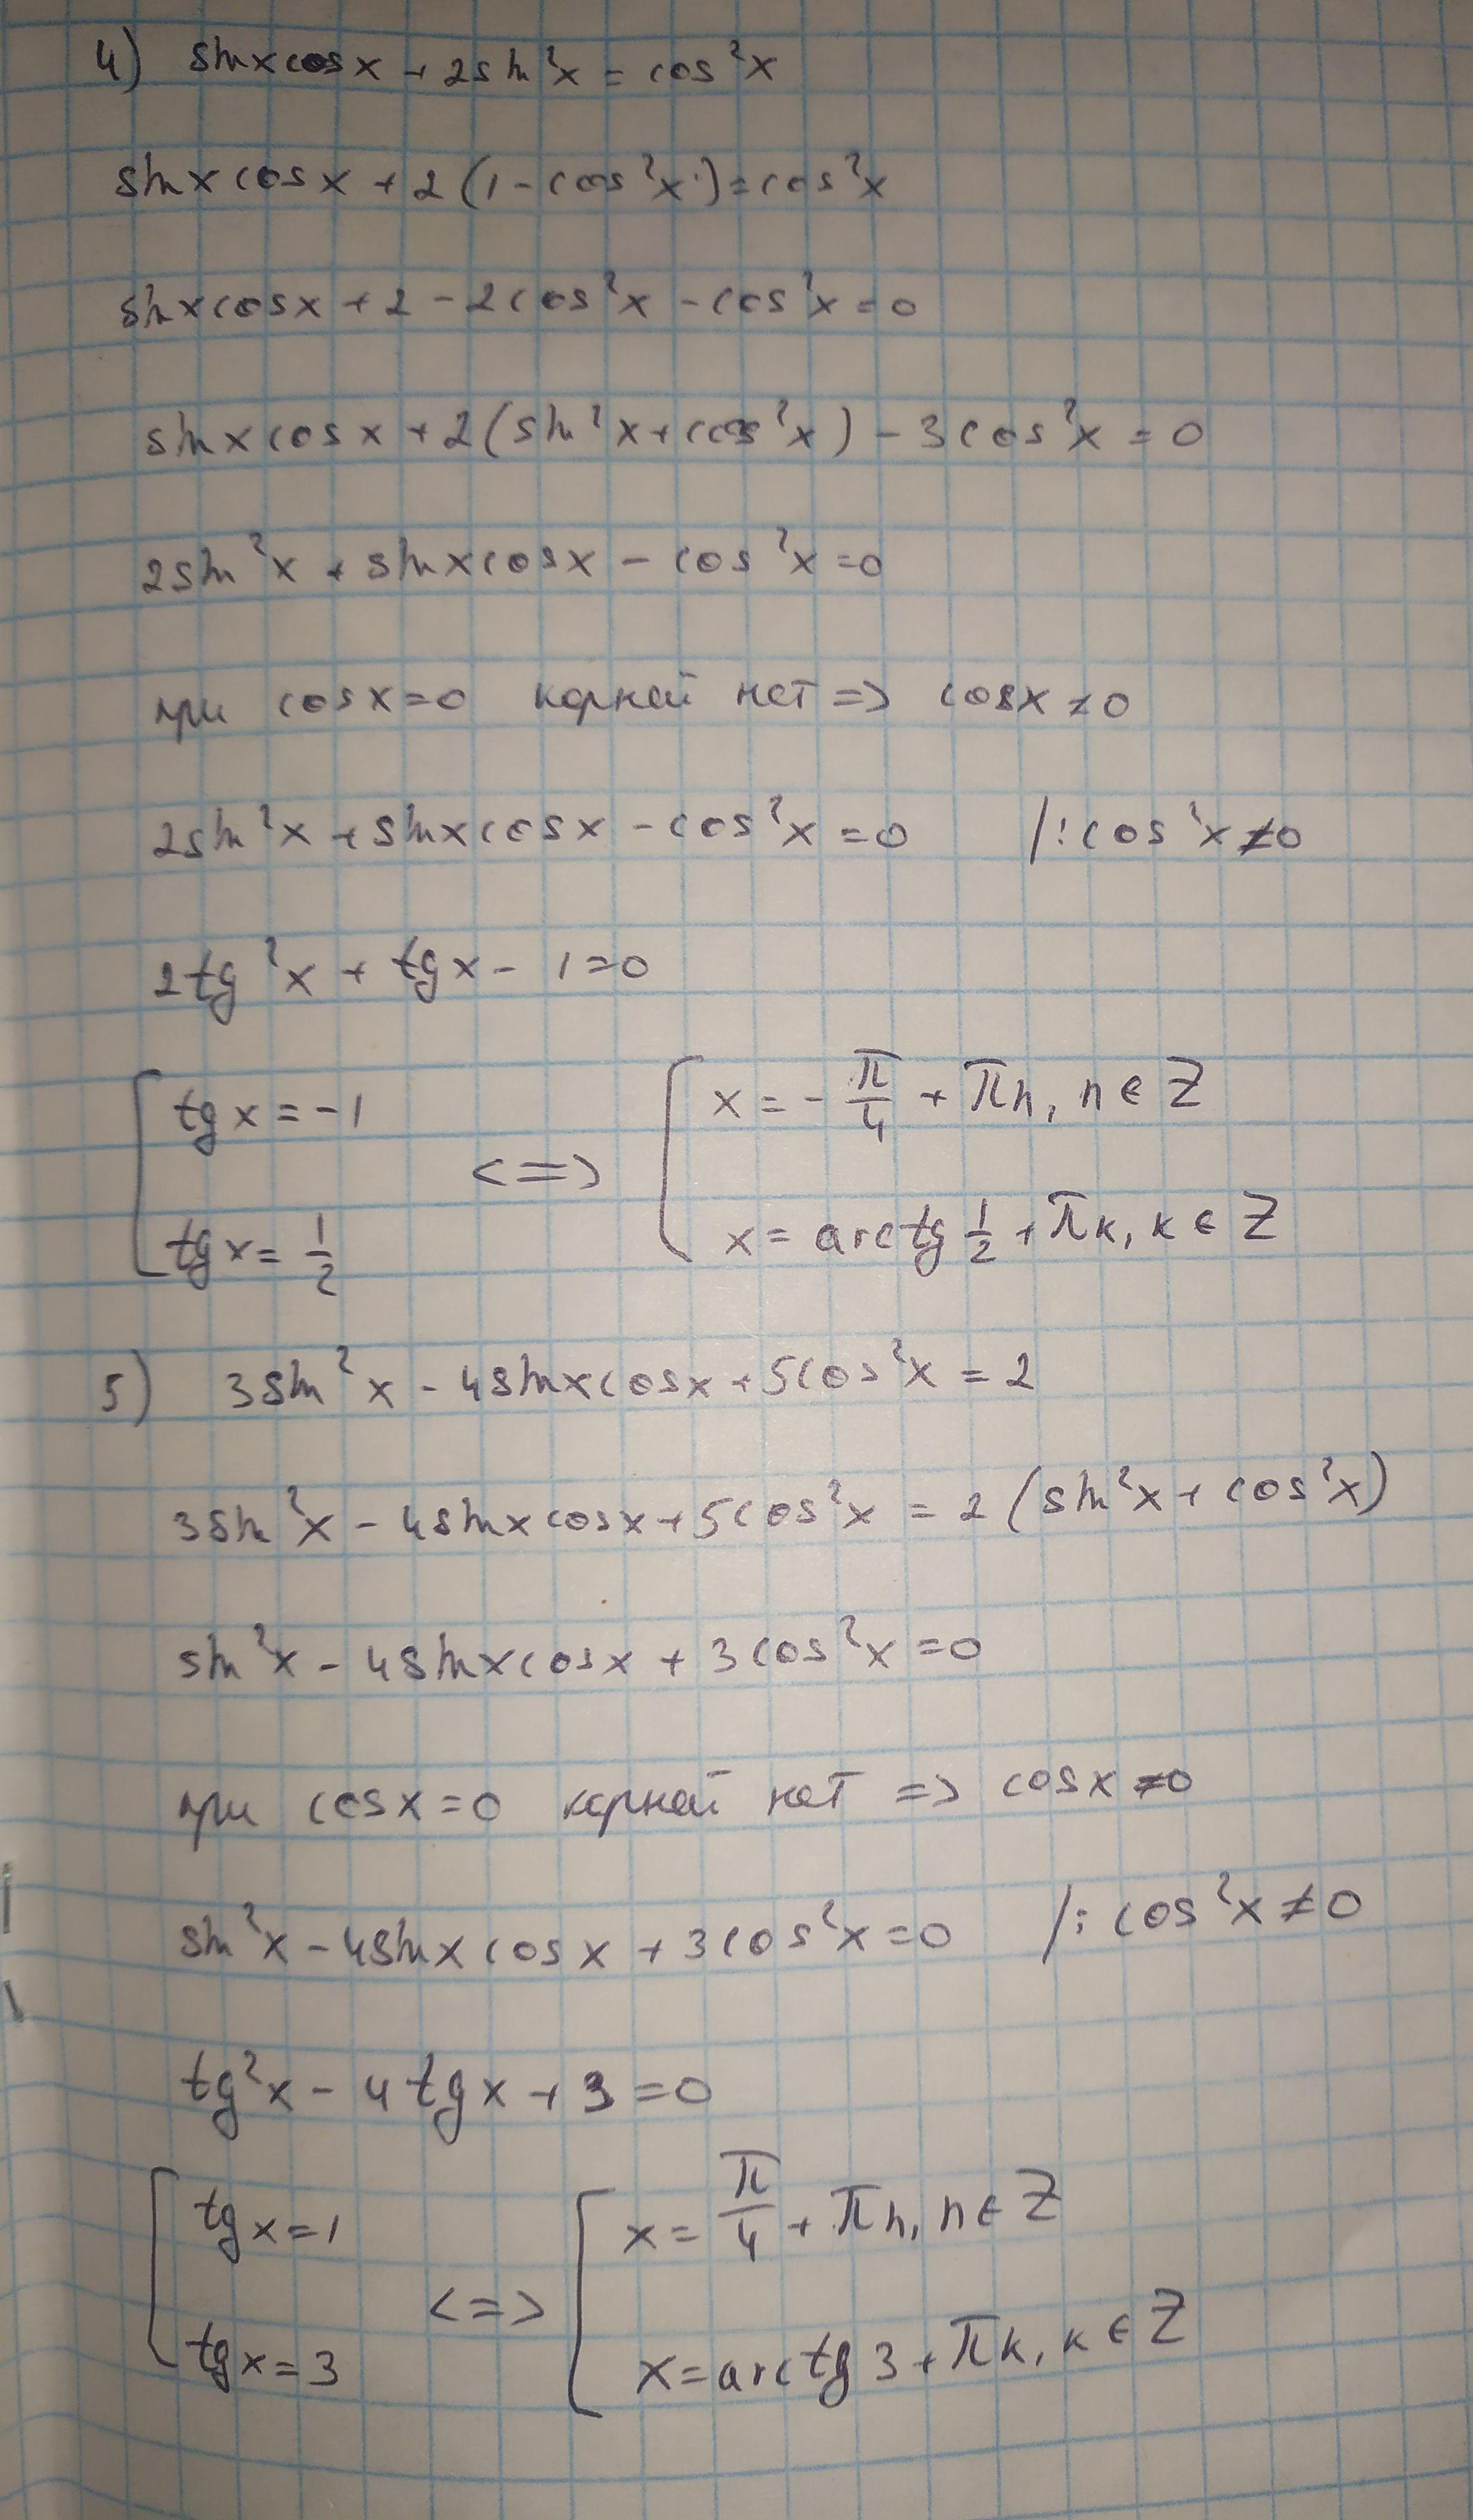 4) sinxcosx + 2sin²x = cos²x
sinxcosx + 2(1 - cos²x) = cos²x
sinxcosx + 2 - 2cos²x - cos²x = 0
sinxcosx + 2(sin²x + cos²x) - 3cos²x = 0
2sin²x + sinxcosx - cos²x = 0
при cosx = 0 корней нет => cosx ≠ 0
2sin²x + sinxcosx - cos²x = 0 /: cos²x ≠ 0
2tg²x + tgx - 1 = 0
[ tgx = -1 <=> [ x = -π/4 + πn, n ∈ Z
tgx = 1/2 x = arctg 1/2 + πk, k ∈ Z
5) 3sin²x - 4sinxcosx + 5cos²x = 2
3sin²x - 4sinxcosx + 5cos²x = 2(sin²x + cos²x)
sin²x - 4sinxcosx + 3cos²x = 0
при cosx = 0 корней нет => cosx ≠ 0
sin²x - 4sinxcosx + 3cos²x = 0 /: cos²x ≠ 0
tg²x - 4tgx + 3 = 0
[ tgx = 1 <=> [ x = π/4 + πn, n ∈ Z
tgx = 3 x = arctg 3 + πk, k ∈ Z